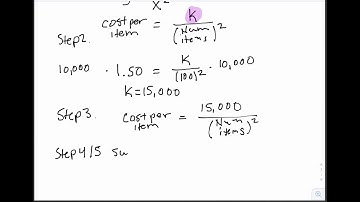 x²
Step2. cost per item = K / (Num items)²
10,000 · 1.50 = K / (100)² · 10,000
K=15,000
Step3. cost per item = 15,000 / (Num items)²
Step 4/5 su